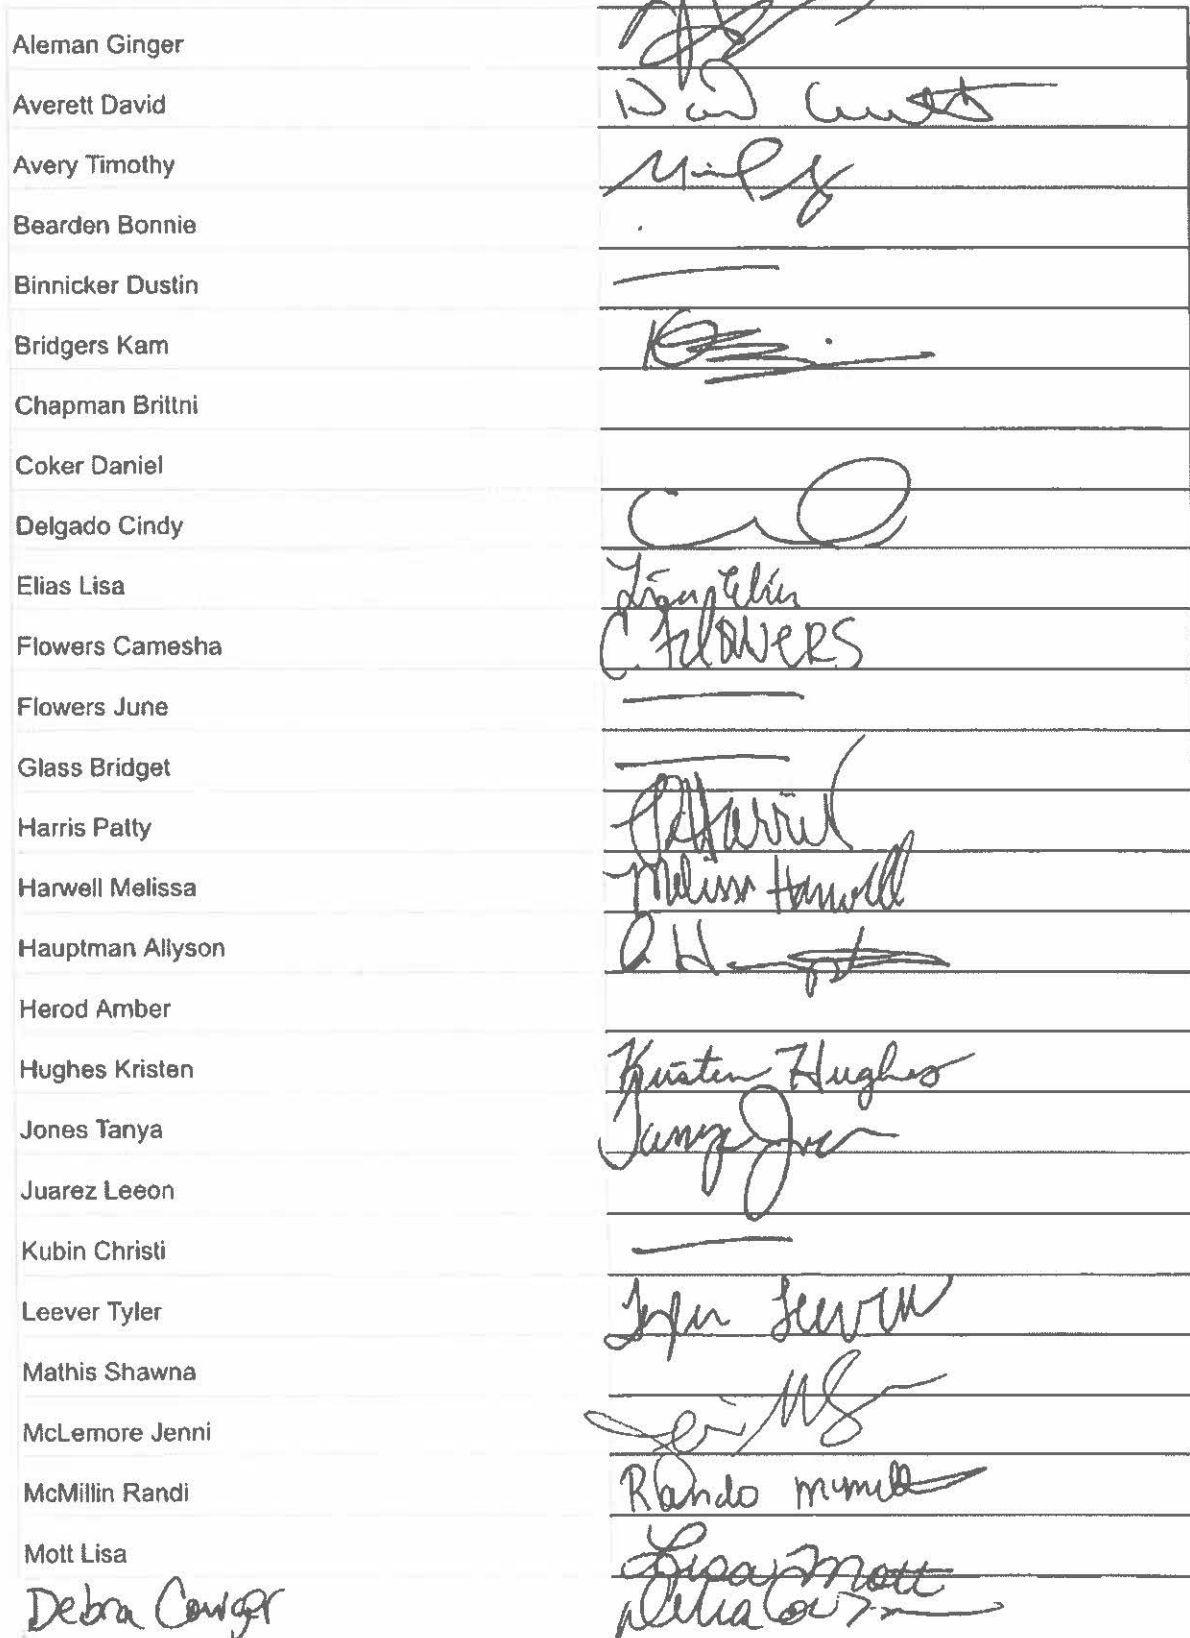 Aleman Ginger
Averett David
Avery Timothy
Bearden Bonnie
Binnicker Dustin
Bridgers Kam
Chapman Brittni
Coker Daniel
Delgado Cindy
Elias Lisa
Flowers Camesha C. Flowers
Flowers June
Glass Bridget
Harris Patty Harris
Harwell Melissa Melissa Harwell
Hauptman Allyson
Herod Amber
Hughes Kristen Kristen Hughes
Jones Tanya Tanya Jones
Juarez Leeon
Kubin Christi
Leever Tyler Tyler Leever
Mathis Shawna
McLemore Jenni
McMillin Randi
Mott Lisa Lisa Mott
Debra Cowger